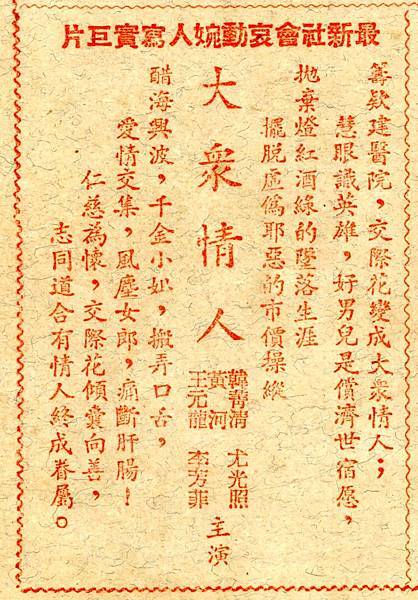 最新社會哀動婉人寫實巨片
籌欵建醫院，交際花變成大衆情人；
慧眼識英雄，好男兒是償濟世宿愿，
拋棄燈紅酒綠的墜落生涯
擺脫虛偽耶惡的市價操縱
大衆情人
韓菁清 尤光照
黃河
王元龍 李芳菲
主演
醋海興波，千金小姐，搬弄口舌，
愛情交集，風塵女郎，痛斷肝腸！
仁慈為懷，交際花傾囊向善，
志同道合有情人終成眷屬。